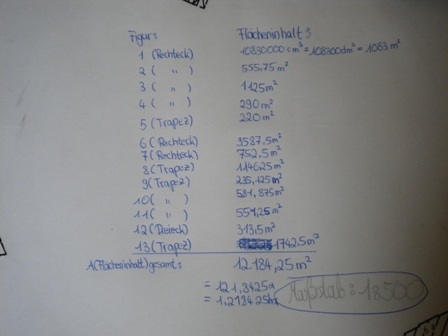 Figur: Flächeninhalt:
1 (Rechteck) 10830000 cm² = 108300 dm² = 1083 m²
2 ( " ) 555,75 m²
3 ( " ) 1125 m²
4 ( " ) 290 m²
5 (Trapez) 220 m²
6 (Rechteck) 3587,5 m²
7 (Rechteck) 752,5 m²
8 (Trapez) 1146,25 m²
9 (Trapez) 235,125 m²
10 ( " ) 581,875 m²
11 ( " ) 551,25 m²
12 (Dreieck) 313,5 m²
13 (Trapez) 1742,5 m²
A (Flächeninhalt) gesamt: 12.184,25 m²
= 121,8425 a
= 1,218425 ha
Maßstab: 1:8500